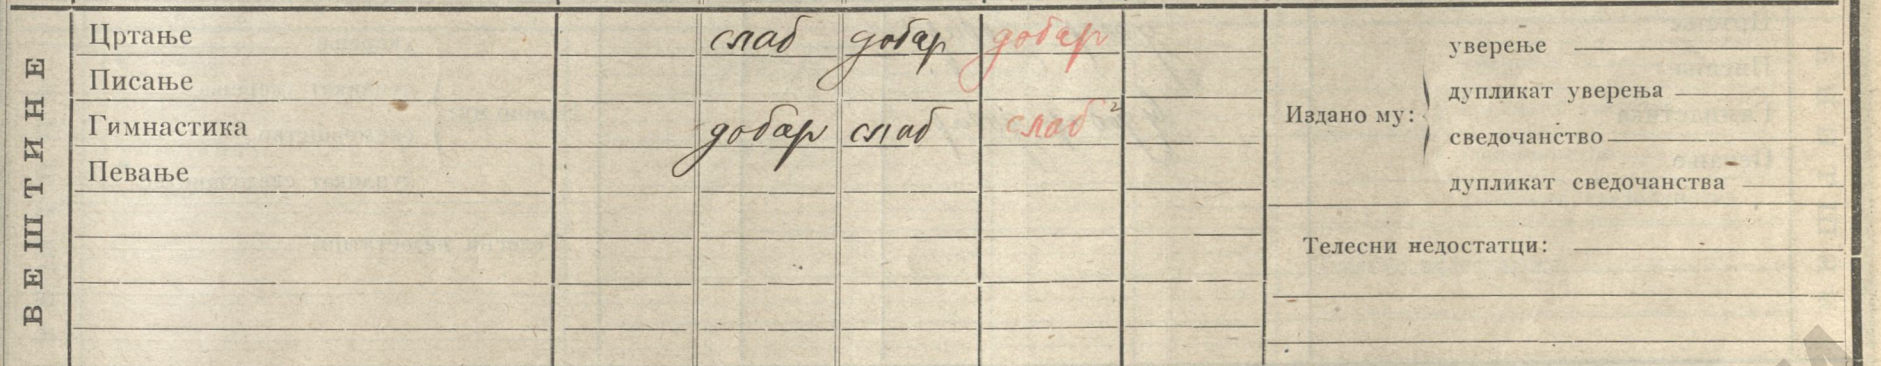 ВЕШТИНЕ
Цртање слаб добар добар
Писање
Гимнастика добар слаб слаб
Певање
Издано му:
уверење
дупликат уверења
сведочанство
дупликат сведочанства
Телесни недостатци: